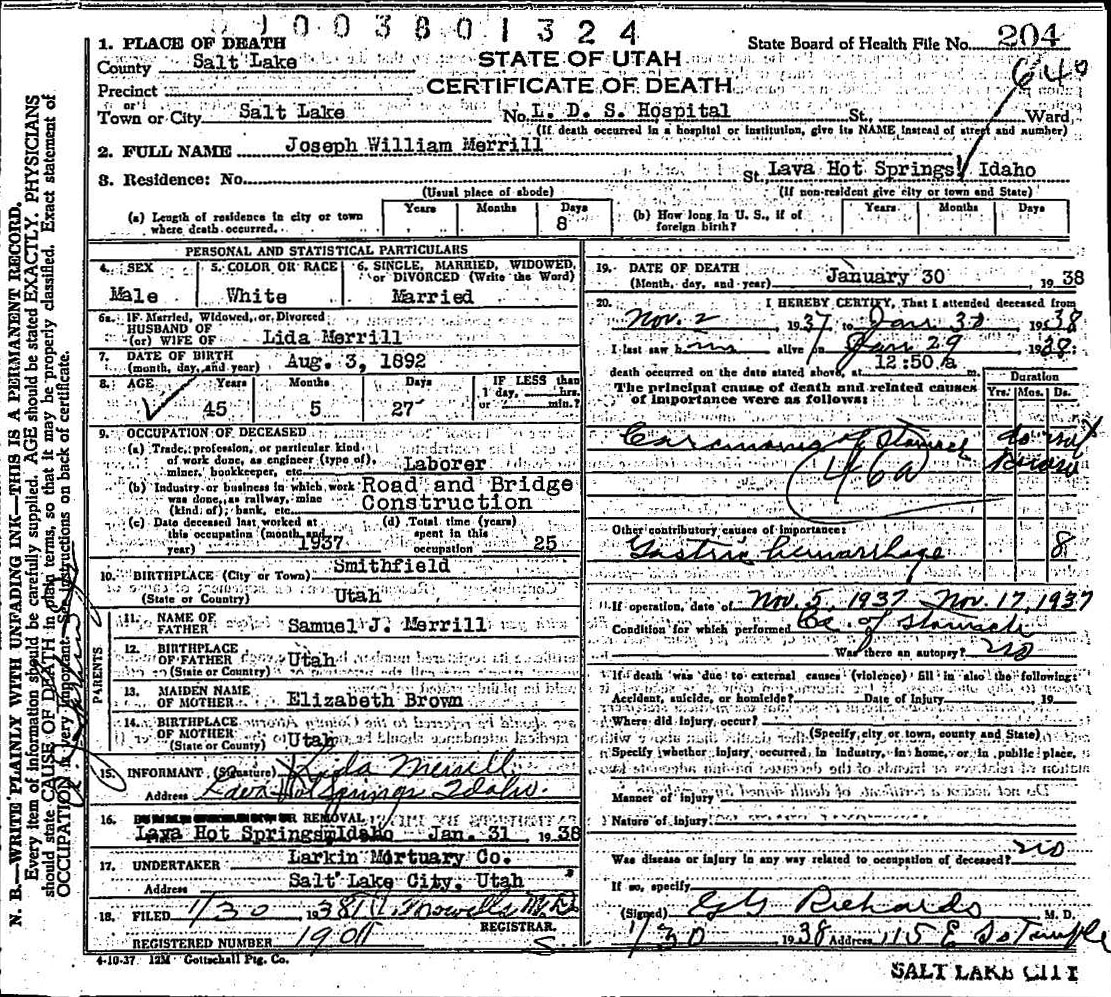 1003801324
1. PLACE OF DEATH
State Board of Health File No. 204
County Salt Lake
STATE OF UTAH
640
Precinct
CERTIFICATE OF DEATH
Town or City Salt Lake No. L. D. S. Hospital St., Ward
(If death occurred in a hospital or institution, give its NAME instead of street and number)
2. FULL NAME Joseph William Merrill
3. Residence: No. St. Lava Hot Springs, Idaho
(Usual place of abode) (If non-resident give city or town and State)
(a) Length of residence in city or town where death occurred. Years Months Days 8
(b) How long in U. S., if of foreign birth? Years Months Days
PERSONAL AND STATISTICAL PARTICULARS
4. SEX Male
5. COLOR OR RACE White
6. SINGLE, MARRIED, WIDOWED, or DIVORCED (Write the Word) Married
6a. IF Married, Widowed, or Divorced
HUSBAND OF
(or) WIFE OF Lida Merrill
7. DATE OF BIRTH
(month, day, and year) Aug. 3, 1892
8. AGE Years 45 Months 5 Days 27
IF LESS than 1 day, hrs. or min.?
9. OCCUPATION OF DECEASED
(a) Trade, profession, or particular kind of work done, as engineer (type of), miner, bookkeeper, etc. Laborer
(b) Industry or business in which work was done, as railway, mine (kind of), bank, etc. Road and Bridge Construction
(c) Date deceased last worked at this occupation (month and year) 1937
(d) Total time (years) spent in this occupation 25
10. BIRTHPLACE (City or Town) Smithfield
(State or Country) Utah
PARENTS
11. NAME OF FATHER Samuel J. Merrill
12. BIRTHPLACE OF FATHER (State or Country) Utah
13. MAIDEN NAME OF MOTHER Elizabeth Brown
14. BIRTHPLACE OF MOTHER (State or Country) Utah
15. INFORMANT (Signature) Lida Merrill
Address Lava Hot Springs Idaho.
16. OR REMOVAL
Lava Hot Springs, Idaho Jan. 31 1938
17. UNDERTAKER Larkin Mortuary Co.
Address Salt Lake City, Utah
18. FILED 1/30 1938 M.D.
REGISTRAR.
REGISTERED NUMBER
4-10-37 12M Gottschall Ptg. Co.
19. DATE OF DEATH
(Month, day, and year) January 30 1938
20. I HEREBY CERTIFY, That I attended deceased from
Nov. 2 1937 to Jan 30 1938
I last saw him alive on Jan 29 1938
death occurred on the date stated above, at 12:50 a m.
The principal cause of death and related causes of importance were as follows:
Duration
Yrs. Mos. Ds.
Carcinoma of Stomach
46a
Other contributory causes of importance:
Gastric hemorrhage 8
If operation, date of Nov. 5, 1937 Nov. 17, 1937
Condition for which performed Ca. of Stomach
Was there an autopsy? no
If death was due to external causes (violence) fill in also the following:
Accident, suicide, or homicide? Date of Injury 19
Where did injury occur?
(Specify city or town, county and State)
Specify whether injury occurred in industry, in home, or in public place,
Manner of injury
Nature of injury
Was disease or injury in any way related to occupation of deceased? no
If so, specify
(Signed) G G Richards M. D.
1/30 1938 Address 115 E So Temple
SALT LAKE CITY
N. B.—WRITE PLAINLY WITH UNFADING INK—THIS IS A PERMANENT RECORD.
Every item of information should be carefully supplied. AGE should be stated EXACTLY. PHYSICIANS
should state CAUSE OF DEATH in plain terms, so that it may be properly classified. Exact statement of
OCCUPATION is very important. See instructions on back of certificate.